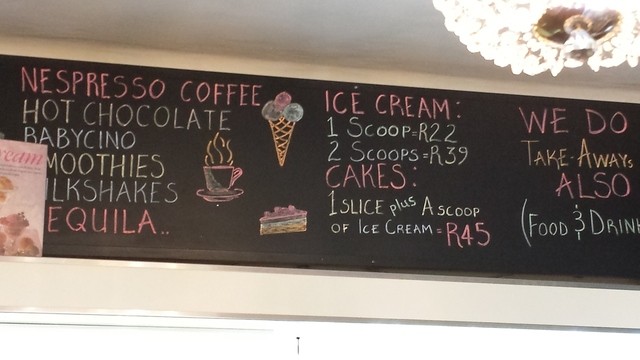 NESPRESSO COFFEE
HOT CHOCOLATE
BABYCINO
MOOTHIES
LKSHAKES
EQUILA..
ICE CREAM:
1 SCOOP=R22
2 SCOOPS=R39
CAKES:
1 SLICE plus A SCOOP
OF ICE CREAM=R45
WE DO
TAKE-AWAYS
ALSO
(FOOD & DRINK
ream